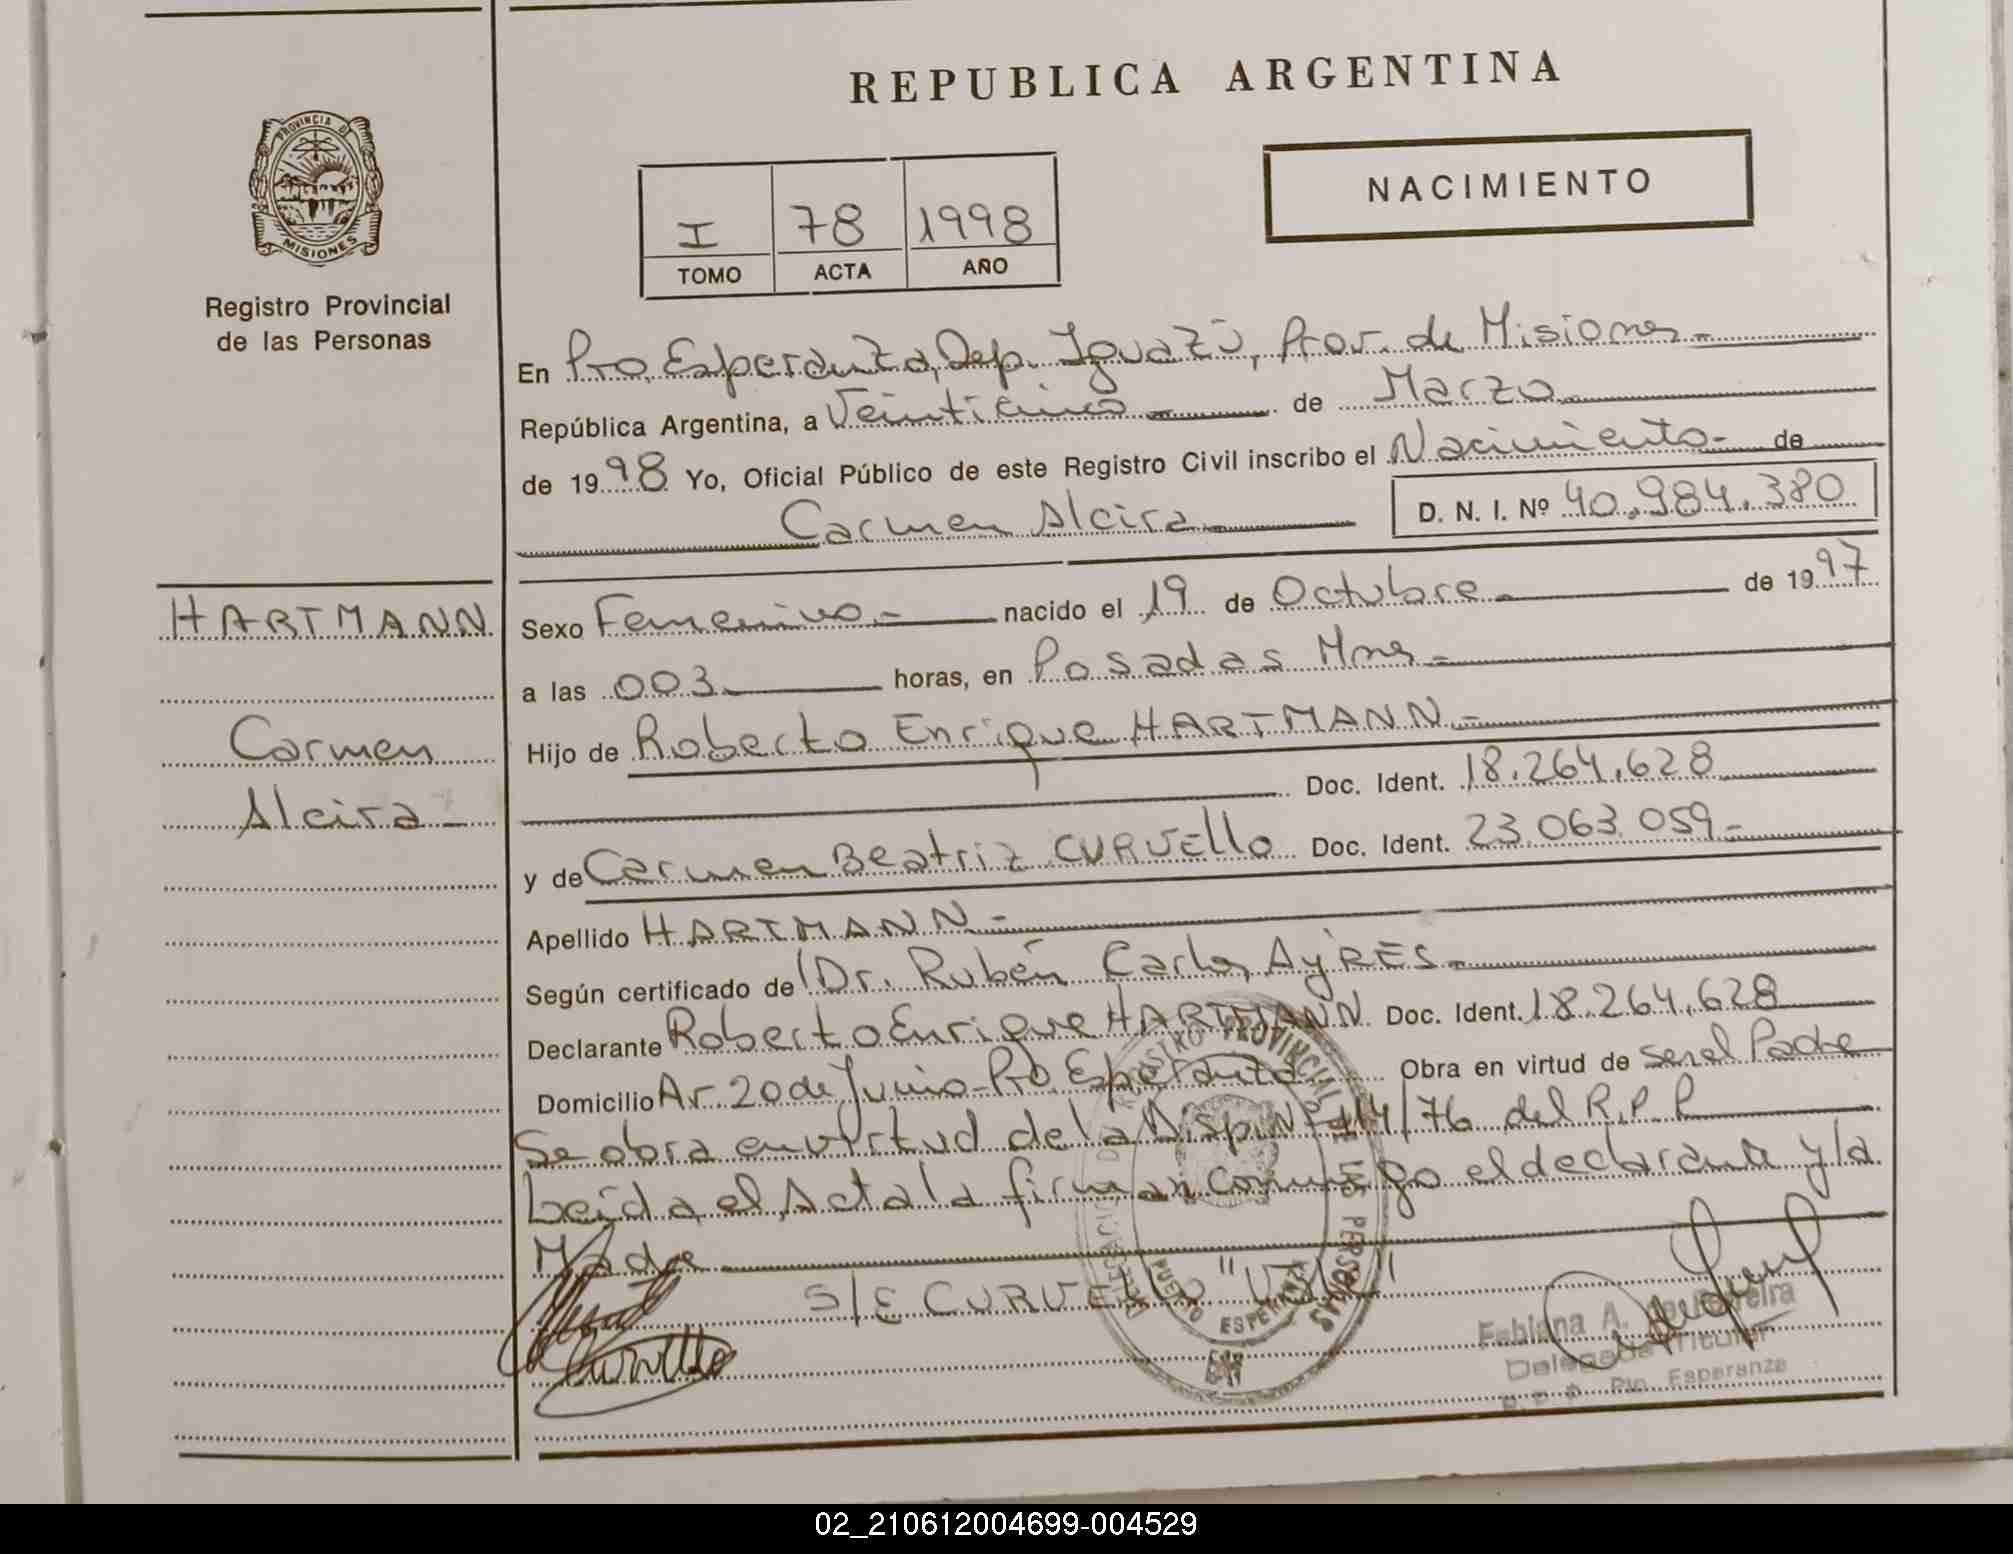 REPUBLICA ARGENTINA
PROVINCIA DE
MISIONES
Registro Provincial
de las Personas
I 78 1998
TOMO ACTA AÑO
NACIMIENTO
En Pto. Esperanza, Dep. Iguazú, Prov. de Misiones.-
República Argentina, a Veinticinco de Marzo
de 1998 Yo, Oficial Público de este Registro Civil inscribo el Nacimiento- de
Carmen Alcira D. N. I. Nº 40.984.380
HARTMANN
Carmen
Alcira-
Sexo Femenino.- nacido el 19 de Octubre.- de 1997
a las 003 horas, en Posadas Mnes-
Hijo de Roberto Enrique HARTMANN.-
Doc. Ident. 18.264.628
y de Carmen Beatriz CURVEllo Doc. Ident. 23.063.059-
Apellido HARTMANN-
Según certificado de Dr. Rubén Carlos AyRES.-
Declarante Roberto Enrique HARTMANN Doc. Ident. 18.264.628
Domicilio Av. 20 de Junio-Pto. Esperanza Obra en virtud de ser el Padre
Se obra en virtud de la Disp. Nº 114/76 del R.P.P
Leída el Acta la firman conmigo el declarante y la
Madre
S/E CURVEllo
REGISTRO PROVINCIAL DE LAS PERSONAS
PUERTO ESPERANZA
Curvello
Fabiana A. Ferreira
Delegada Titular
Pto. Esperanza
02_210612004699-004529